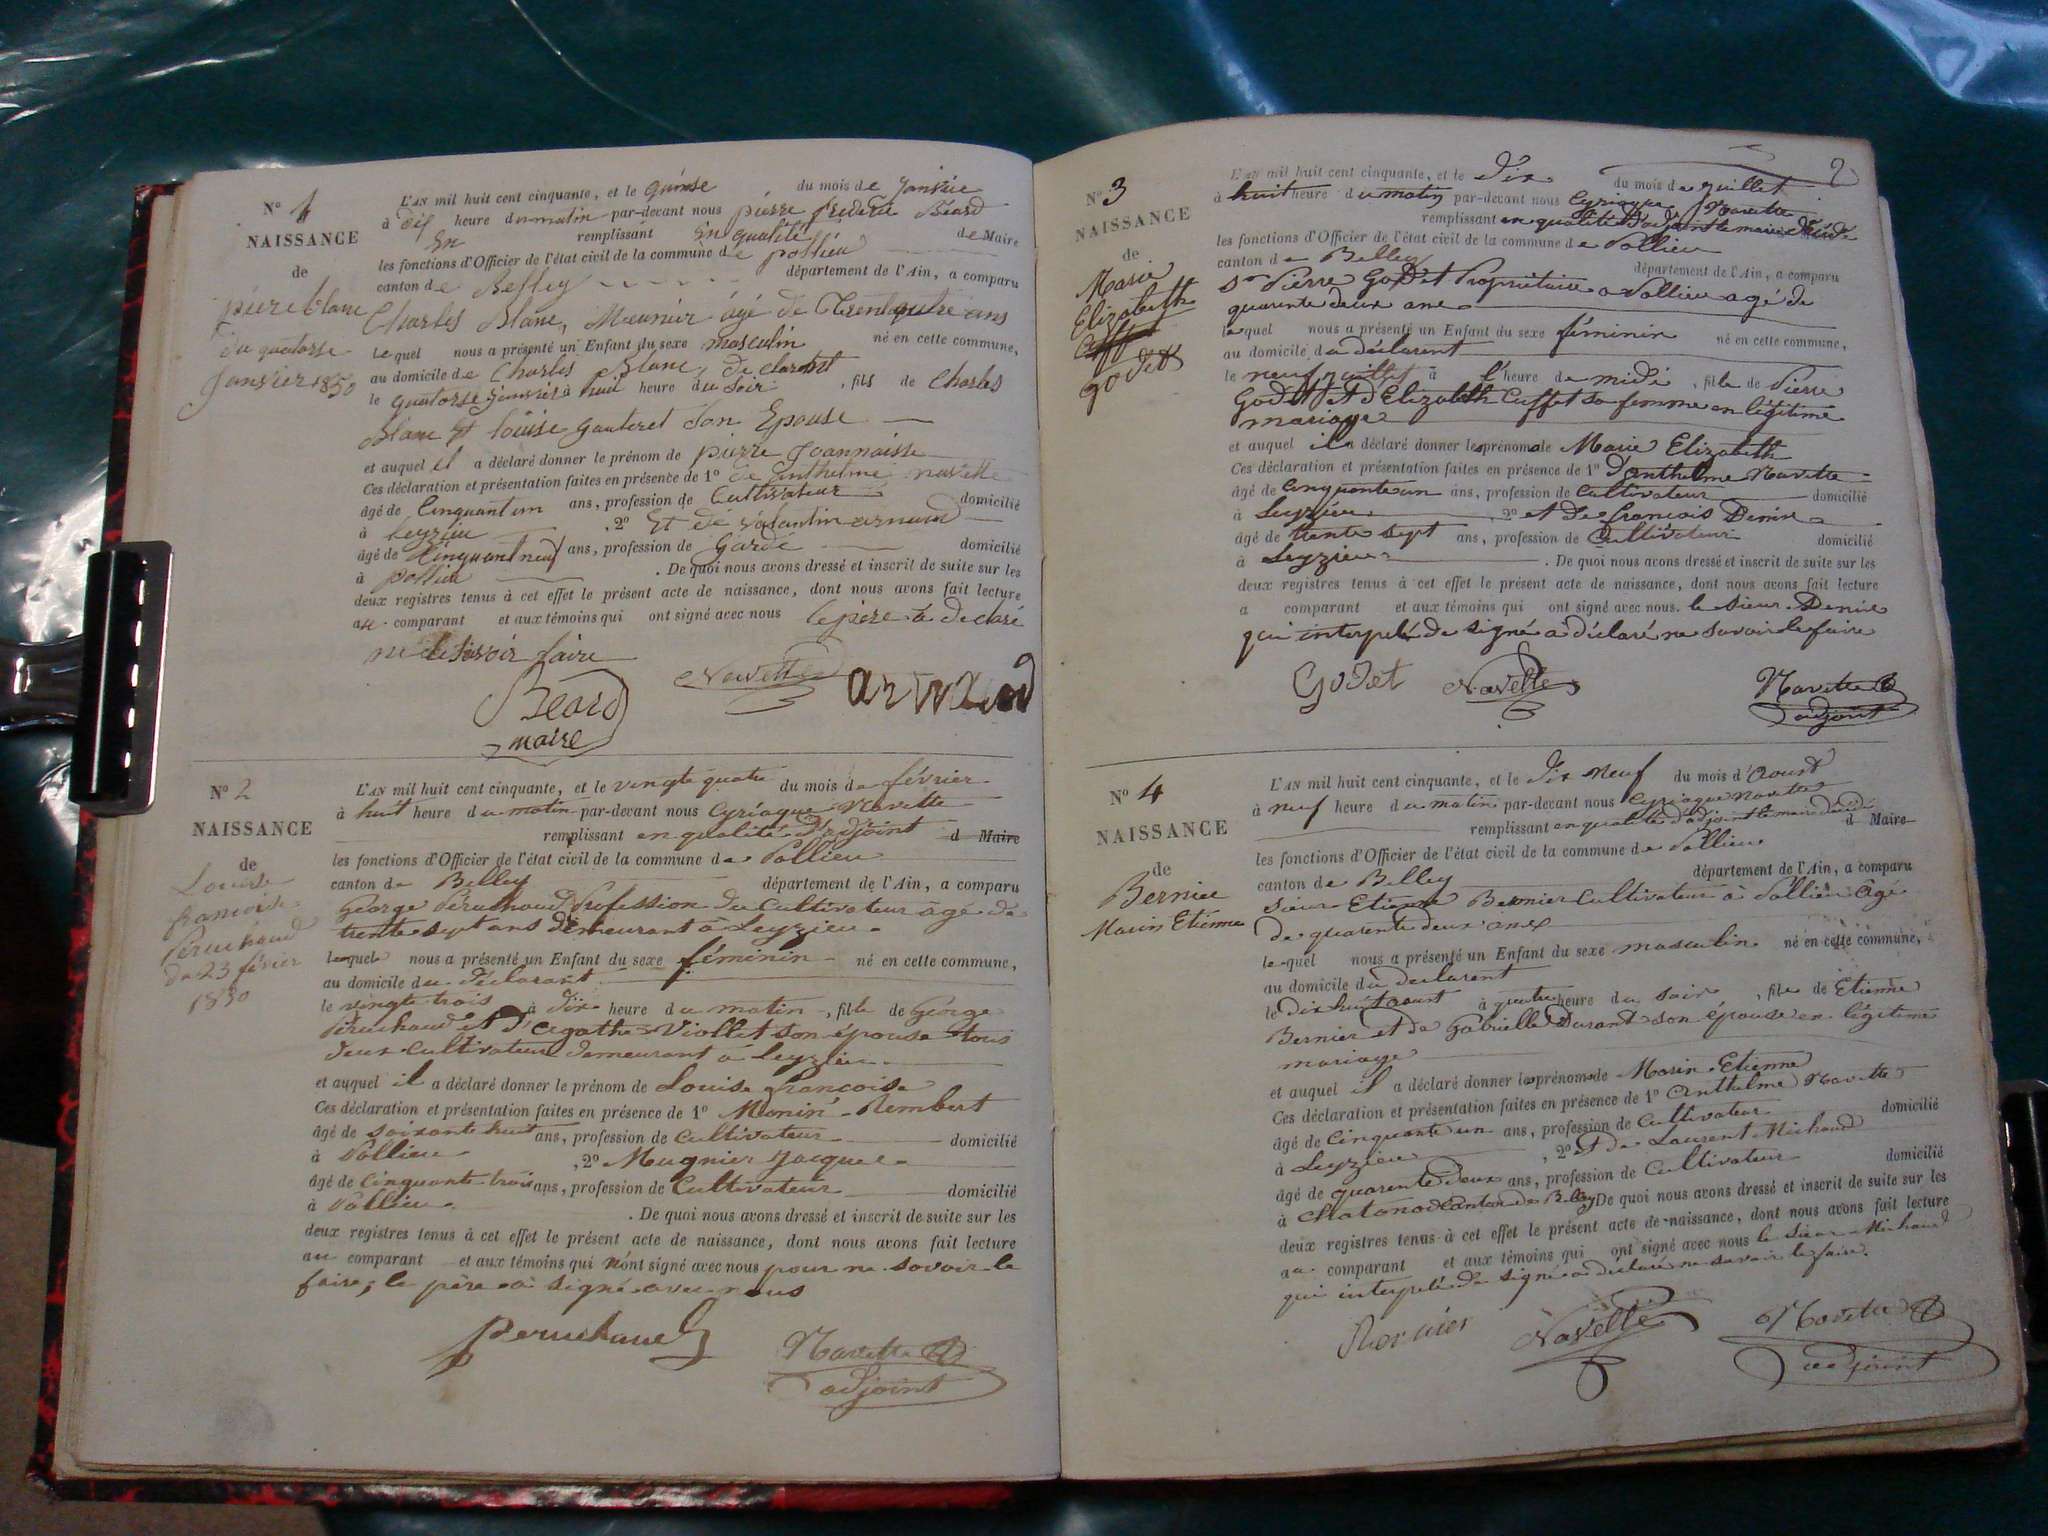 N° 1
NAISSANCE
de
pierre blanc
du quatorse
Janvier 1850
L'AN mil huit cent cinquante, et le quinse du mois de Janvier
à dix heure du matin par-devant nous pierre frédéric Béard
En remplissant En qualité de Maire
les fonctions d'Officier de l'état civil de la commune de pollieu
canton de Belley département de l'Ain, a comparu
Charles Blanc, Meunier âgé de Trentequatre ans
lequel nous a présenté un Enfant du sexe masculin né en cette commune,
au domicile de Charles Blanc,
le quatorse Janvier à huit heure du soir , fils de Charles
Blanc Et louise Gauteret Son Epouse
et auquel il a déclaré donner le prénom de pierre Joannaisse
Ces déclaration et présentation faites en présence de 1° de anthelme navette
âgé de Cinquant un ans, profession de Cultivateur domicilié
à leyzieu , 2° Et de valantin arnaud
âgé de Cinquant neuf ans, profession de Garde domicilié
à pollieu . De quoi nous avons dressé et inscrit de suite sur les
deux registres tenus à cet effet le présent acte de naissance, dont nous avons fait lecture
au comparant et aux témoins qui ont signé avec nous le père a declaré
ne le savoir faire
Béard
maire
Navette
arnaud
N° 2
NAISSANCE
de
Louise
francoise
Peruchaud
du 23 févier
1850
L'AN mil huit cent cinquante, et le vingte quatre du mois de février
à huit heure du matin par-devant nous Cyriaque Navette
remplissant en qualité d'adjoint d Maire
les fonctions d'Officier de l'état civil de la commune de Pollieu
canton de Belley département de l'Ain, a comparu
George Péruchaud Profession de Cultivateur âgé de
trente sept ans demeurant à Leyzieu
lequel nous a présenté un Enfant du sexe féminin né en cette commune,
au domicile du déclarant
le vingte trois à dix heure du matin , fille de George
Péruchaud et d'Agathe Viollet son épouse tous
deux cultivateurs demeurant à Leyzieu
et auquel il a déclaré donner le prénom de Louise françoise
Ces déclaration et présentation faites en présence de 1° Monin Rembert
âgé de soixante huit ans, profession de cultivateur domicilié
à Pollieu , 2° Mugnier Jacques
âgé de cinquante trois ans, profession de Cultivateur domicilié
à Pollieu . De quoi nous avons dressé et inscrit de suite sur les
deux registres tenus à cet effet le présent acte de naissance, dont nous avons fait lecture
au comparant et aux témoins qui n'ont signé avec nous pour ne savoir le
faire, le père a signé avec nous
Peruchaud
Navette
adjoint
2
N° 3
NAISSANCE
de
Marie
Elizabeth
Cuffet
godet
L'AN mil huit cent cinquante, et le Dix du mois de Juillet
à huit heure du matin par-devant nous Cyriaque Navette
remplissant en qualité d'adjoint le maire décédé
les fonctions d'Officier de l'état civil de la commune de Pollieu
canton de Belley département de l'Ain, a comparu
Sr Pierre Godet Propriétaire a Pollieu agé de
quarente deux ans
lequel nous a présenté un Enfant du sexe féminin né en cette commune,
au domicile du déclarent
le neuf Juillet à l'heure de midi , fille de Pierre
Godet Et d'Elizabeth Cuffet sa femme en légitime
mariage
et auquel il a déclaré donner les prénoms de Marie Elizabeth
Ces déclaration et présentation faites en présence de 1° d'Anthelme Navette
âgé de Cinquante un ans, profession de Cultivateur domicilié
à Leyzieu , 2° et de francois Denire
âgé de trente sept ans, profession de Cultivateur domicilié
à Leyzieu . De quoi nous avons dressé et inscrit de suite sur les
deux registres tenus à cet effet le présent acte de naissance, dont nous avons fait lecture
a comparant et aux témoins qui ont signé avec nous. le sieur Denire
qui interpelé de signé a déclaré ne savoir le faire
Godet
Navette
Navette
adjoint
N° 4
NAISSANCE
de
Bernier
Marin Etiénne
L'AN mil huit cent cinquante, et le Dix neuf du mois d'Aoust
à neuf heure du matin par-devant nous Cyriaque Navette
remplissant en qualité d'adjoint le maire décédé d Maire
les fonctions d'Officier de l'état civil de la commune de Pollieu
canton de Belley département de l'Ain, a comparu
sieur Etienne Bernier Cultivateur à Pollieu Agé
de quarente deux ans
lequel nous a présenté un Enfant du sexe masculin né en cette commune,
au domicile du déclarent
le dix huit aout à quatre heure du soir , fils de Etienne
Bernier et de Gabrielle Durant son épouse en légitime
mariage
et auquel il a déclaré donner les prénoms de Marin Etienne
Ces déclaration et présentation faites en présence de 1° Anthelme Navette
âgé de Cinquante un ans, profession de Cultivateur domicilié
à Leyzieu , 2° et de Laurent Michaud
âgé de quarente deux ans, profession de Cultivateur domicilié
à Chatonod Canton de Belley De quoi nous avons dressé et inscrit de suite sur les
deux registres tenus à cet effet le présent acte de naissance, dont nous avons fait lecture
au comparant et aux témoins qui ont signé avec nous le sieur Michaud
qui interpelé de signé a déclaré ne savoir le faire.
Bernier
Navette
Navette
adjoint